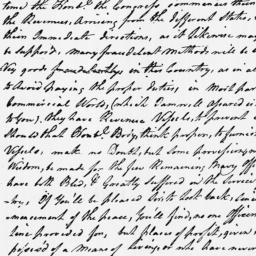 time the Honble. the Congress commences their
the Revenues, Arising from the different States,
their Immediate directions, as it likewise may
be suppos'd, many fraudulent Methods will be
Very good in this Country, as in
to Avoid paying the proper duties, in Most par
Commercial World, (which I am well assured is
to You), they have Revenue Vessels, to prevent
Should that Honble. Body, think proper, to furnish
Vessels, make no Doubt, but Some provision,
Wisdom, be made for the few Remaining Navy Offi
have both Bled, & Greatly Suffered in the Service
-try, If You'll be pleased Sir to look back, Since
-mencement of the peace, You'll find, no one Officer
line provided for, but places of profit, given
posess'd of a Means of Living, or who have never